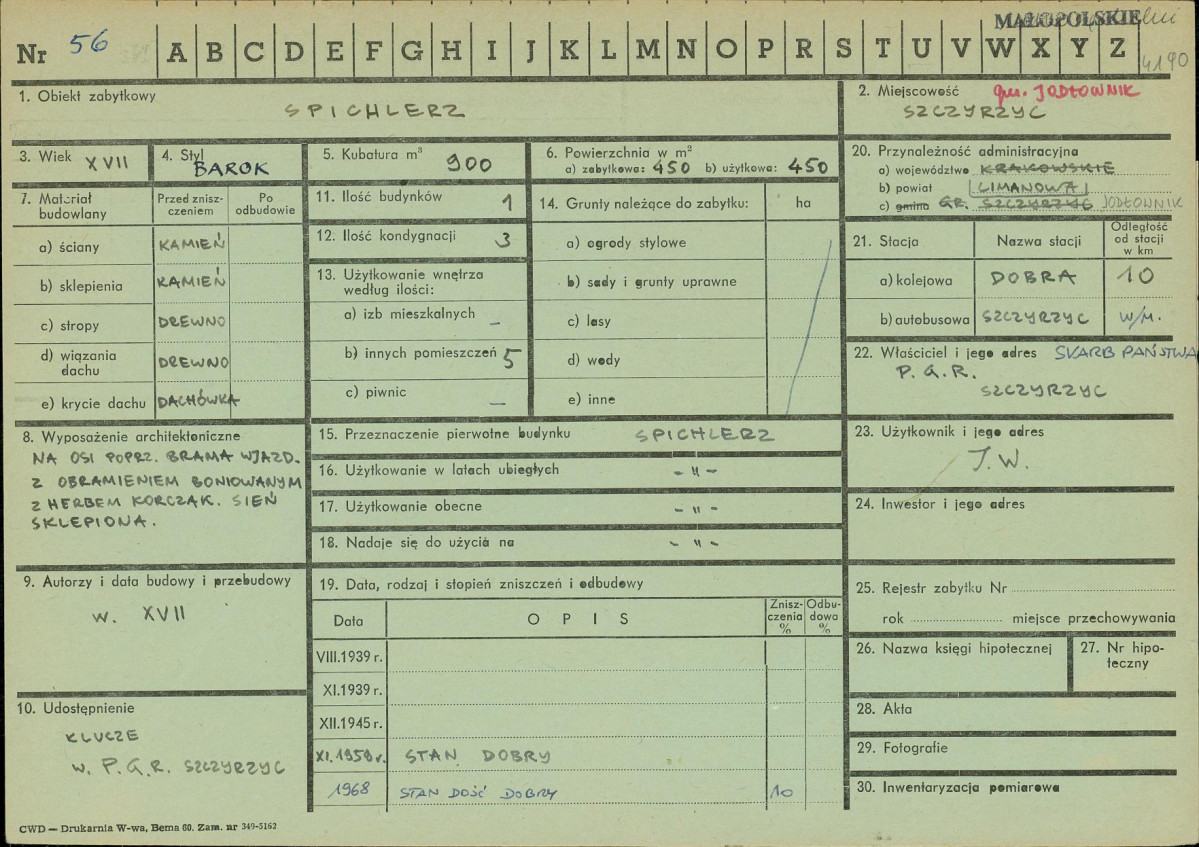 MAŁOPOLSKIE
Nr 56 A B C D E F G H I J K L M N O P R S T U V W X Y Z
4190
1. Obiekt zabytkowy
SPICHLERZ
2. Miejscowość gm. JODŁOWNIK
SZCZYRZYC
3. Wiek XVII
4. Styl
BAROK
5. Kubatura m³ 900
6. Powierzchnia w m²
a) zabytkowa: 450 b) użytkowa: 450
7. Materiał budowlany
Przed zniszczeniem
Po odbudowie
a) ściany KAMIEŃ
b) sklepienia KAMIEŃ
c) stropy DREWNO
d) wiązania dachu DREWNO
e) krycie dachu DACHÓWKA
8. Wyposażenie architektoniczne
NA OSI POPRZ. BRAMA WJAZD.
Z OBRAMIENIEM BONIOWANYM
Z HERBEM KORCZAK. SIEŃ
SKLEPIONA.
9. Autorzy i data budowy i przebudowy
w. XVII
10. Udostępnienie
KLUCZE
w. P.G.R. SZCZYRZYC
11. Ilość budynków 1
12. Ilość kondygnacji 3
13. Użytkowanie wnętrza
według ilości:
a) izb mieszkalnych –
b) innych pomieszczeń 5
c) piwnic –
14. Grunty należące do zabytku: ha
a) ogrody stylowe
b) sady i grunty uprawne
c) lasy
d) wody
e) inne
15. Przeznaczenie pierwotne budynku SPICHLERZ
16. Użytkowanie w latach ubiegłych - " -
17. Użytkowanie obecne - " -
18. Nadaje się do użycia na - " -
19. Data, rodzaj i stopień zniszczeń i odbudowy
Data OPIS Zniszczenia % Odbudowa %
VIII.1939 r.
XI.1939 r.
XII.1945 r.
XI.1959 r. STAN DOBRY
1968 STAN DOŚĆ DOBRY 10
20. Przynależność administracyjna
a) województwo KRAKOWSKIE
b) powiat LIMANOWA
c) gmina GR. SZCZYRZYC JODŁOWNIK
21. Stacja Nazwa stacji Odległość od stacji w km
a) kolejowa DOBRA 10
b) autobusowa SZCZYRZYC W/M.
22. Właściciel i jego adres SKARB PAŃSTWA
P.G.R.
SZCZYRZYC
23. Użytkownik i jego adres
J.W.
24. Inwestor i jego adres
25. Rejestr zabytku Nr
rok miejsce przechowywania
26. Nazwa księgi hipotecznej
27. Nr hipoteczny
28. Akta
29. Fotografie
30. Inwentaryzacja pomiarowa
CWD — Drukarnia W-wa, Bema 60. Zam. nr 349-5162